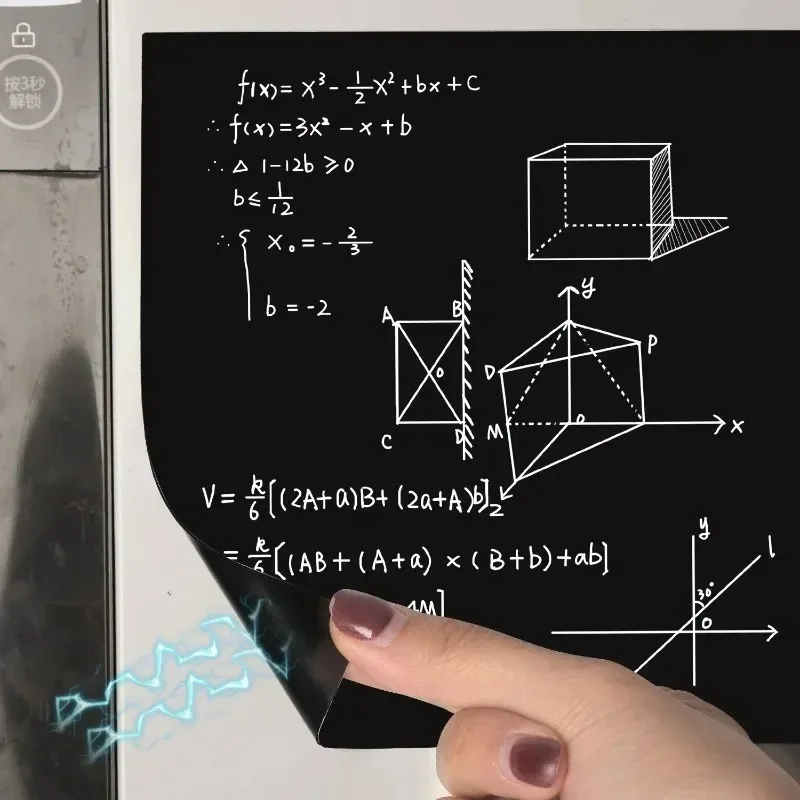 按3秒
解锁
f(x)=x³-1/2x²+bx+c
∴ f(x)=3x²-x+b
∴ △ 1-12b≥0
b≤1/12
∴ { x₀=-2/3
b=-2
A B
O
C D
y
P
D
M O x
z
V=k/6[(2A+a)B+(2a+A)b]
=k/6[(AB+(A+a)×(B+b)+ab]
4M]
y
l
30°
O